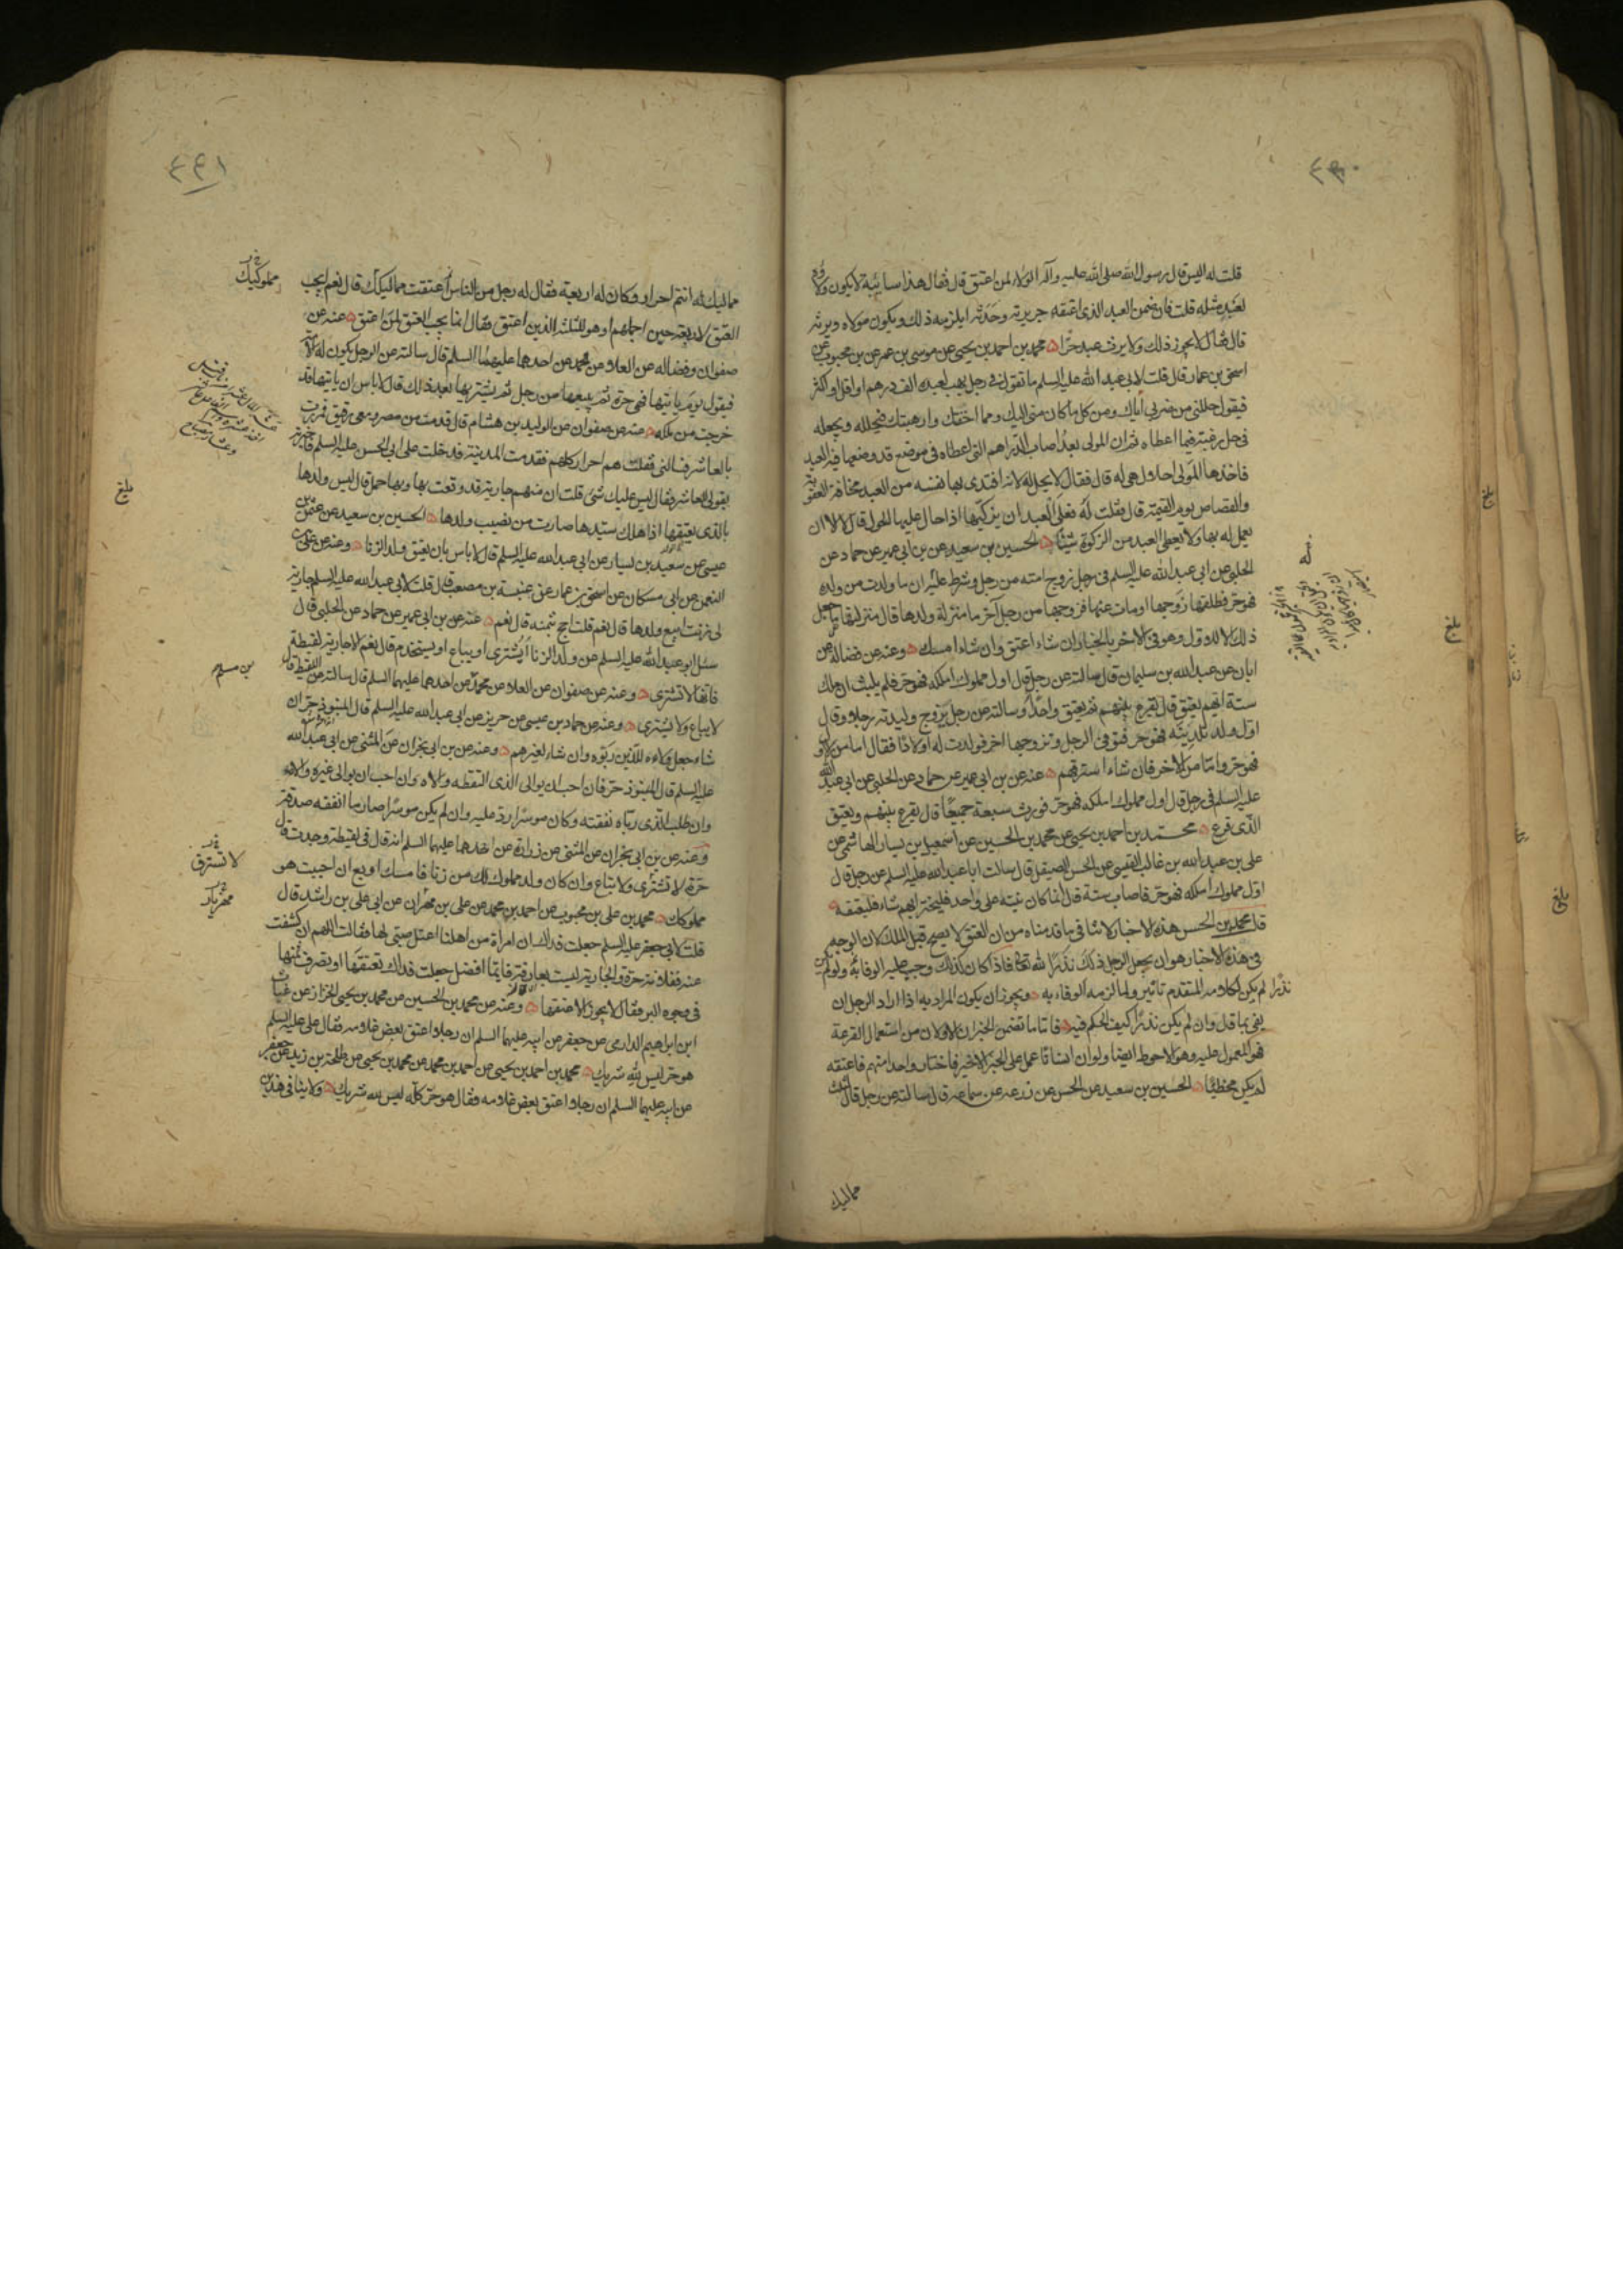 ٤٩٠
قلت له اليس قال رسول الله صلى الله عليه وآله الولاء لمن اعتق قال فقال هذا سائبة لا يكون ولاؤه
لعبد مثله قلت فان ضمن العبد الذى اعتقه جريرته وحدثه ايلزمه ذلك ويكون مولاه ويرثه
قال فقال لا يجوز ذلك ولا يرث عبد حرا محمد بن احمد بن يحيى عن موسى بن عمر عن بن محبوب عن
اسحق بن عمار قال قلت لابى عبد الله عليه السلم ما تقول فى رجل يهب لعبده الف درهم او اقل او اكثر
فيقول حللنى من ضربى اياك ومن كل ما كان منى اليك ومما اخفتك وارهبتك فيحلله ويجعله
فى حل رغبة فيما اعطاه ثم ان المولى بعد اصاب الدراهم التى اعطاه فى موضع قد وضعها فيه العبد
فاخذها المولى احلال هى له قال فقال لا يحل له لانه افتدى بها نفسه من العبد مخافة العقوبة
والقصاص يوم القيمة قال فقلت له فعلى العبد ان يزكيها اذا حال عليها الحول قال لا الا ان
يعمل له بها ولا يعطى العبد من الزكوة شيئا الحسين بن سعيد عن بن ابى عمير عن حماد عن
الحلبى عن ابى عبد الله عليه السلم فى رجل زوج امته من رجل وشرط عليه ان ما ولدت من ولد
فهو حر فطلقها زوجها او مات عنها فزوجها من رجل آخر ما منزلة ولدها قال منزلتها ما جعل
ذلك الا للاول وهو فى الاخر بالخيار ان شاء اعتق وان شاء امسك وعنه عن فضالة عن
ابان عن عبد الله بن سليمان قال سالته عن رجل قال اول مملوك املكه فهو حر فلم يلبث ان ملك
ستة ايهم يعتق قال يقرع بينهم ثم يعتق واحدا وسالته عن رجل يزوج وليدته رجلا وقال
اول ولد تلدينه فهو حر فتوفى الرجل وتزوجها اخر فولدت له اولادا فقال اما من الاول
فهو حر واما من الاخر فان شاء استرقهم عنه عن بن ابى عمير عن حماد عن الحلبى عن ابى عبد الله
عليه السلم فى رجل قال اول مملوك املكه فهو حر فورث سبعة جميعا قال يقرع بينهم ويعتق
الذى قرع محمد بن احمد بن يحيى عن محمد بن الحسين عن اسمعيل بن يسار الهاشمى عن
على بن عبد الله بن غالب القيسى عن الحسن الصيقل قال سالت ابا عبد الله عليه السلم عن رجل قال
اول مملوك املكه فهو حر فاصاب ستة قال انما كان نيته على واحد فليختر ايهم شاء فليعتقه
قال محمد بن الحسن هذه الاخبار لا تنافى ما قدمناه من ان العتق لا يصح قبل الملك لان الوجه
فى هذه الاخبار هو ان يجعل الرجل ذلك نذرا لله تعالى فاذا كان كذلك وجب عليه الوفا به ولو لم يكن
نذرا لم يكن لكلامه المتقدم تاثير ولما لزمه الوفاء به ويجوز ان يكون المراد به اذا اراد الرجل ان
يفى بما قال وان لم يكن نذرا كيف الحكم فيه فاما ما تضمن الخبران الاولان من استعمال القرعة
فهو المعمول عليه وهو الاحوط ايضا ولو ان انسانا عمل على الخبر الاخير فاختار واحدا منهم فاعتقه
لم يكن مخطئا الحسين بن سعيد عن الحسن عن زرعه عن سماعه قال سالته عن رجل قال لثلثة
مماليك
بلغ
بلغ
بلغ
٤٩١
مماليك له انتم احرار وكان له اربعة فقال له رجل من الناس أعتقت مماليكك قال نعم ايجب
العتق لاربعته حين اجملهم او هو للثلثة الذين اعتق فقال انما يجب العتق لمن اعتق عنه عن
صفوان وفضاله عن العلاء عن محمد عن احدهما عليهما السلم قال سالته عن الرجل يكون له الامة
فيقول يوم ياتيها فهى حرة ثم يبيعها من رجل ثم يشتريها بعد ذلك قال لا باس ان ياتيها قد
خرجت من ملكه عنه عن صفوان عن الوليد بن هشام قال قدمت من مصر ومعى رقيق فمررت
بالعاشر فسالنى فقلت هم احرار كلهم فقدمت المدينة فدخلت على ابى الحسن عليه السلم فاخبرته
بقولى للعاشر فقال ليس عليك شئ قلت ان منهم جارية قد وقعت بها وبها حمل قال ليس ولدها
بالذى يعتقها اذا هلك سيدها صارت من نصيب ولدها الحسين بن سعيد عن عثمن بن
عيسى عن سعيد بن يسار عن ابى عبد الله عليه السلم قال لا باس بان يعتق ولد الزنا وعنه عن على بن
النعمن عن ابى مسكان عن اسحق بن عمار عن عنبسة بن مصعب قال قلت لابى عبد الله عليه السلم جارية
لى زنت ابيع ولدها قال نعم قلت احج بثمنه قال نعم عنه عن بن ابى عمير عن حماد عن الحلبى قال
سئل ابو عبد الله عليه السلم عن ولد الزنا أيشترى او يباع او يستخدم قال نعم الا جارية لقيطة
فانها لا تشترى وعنه عن صفوان عن العلاء عن محمد عن احدهما عليهما السلم قال سالته عن اللقيط قال
لا يباع ولا يشترى وعنه عن حماد بن عيسى عن حريز عن ابى عبد الله عليه السلم قال المنبوذ حر ان
شاء جعل ولاءه للذين ربوه وان شاء لغيرهم وعنه عن بن ابى نجران عن المثنى عن ابى عبد الله
عليه السلم قال المنبوذ حر فان احب ان يوالى الذى التقطه والاه وان احب ان يوالى غيره والاه
وان طلب الذى رباه نفقته وكان موسرا رد عليه وان لم يكن موسرا صار ما انفقه صدقة
وعنه عن بن ابى نجران عن المثنى عن زرارة عن احدهما عليهما السلم انه قال فى لقيطة وجدت قال
حرة لا تشترى ولا تباع وان كان ولد مملوك لك من زنا فامسك او بع ان احببت هو
مملوكك محمد بن على بن محبوب عن احمد بن محمد عن على بن مهران عن ابى على بن راشد قال
قلت لابى جعفر عليه السلم جعلت فداك ان امرأة من اهلنا اعتل صبى لها فقالت اللهم ان كشفت
عنه ففلانة حرة والجارية ليست بعارفة فايما افضل جعلت فداك تعتقها او تصرف ثمنها
فى وجوه البر فقال لا يجوز الا عتقها وعنه عن محمد بن الحسين عن محمد بن يحيى الخزاز عن غياث
ابن ابراهيم الدارمى عن جعفر عن ابيه عليهما السلم ان رجلا اعتق بعض غلامه فقال على عليه السلم
هو حر ليس لله شريك محمد بن احمد بن يحيى عن احمد بن محمد عن محمد بن يحيى عن طلحة بن زيد عن جعفر
عن ابيه عليهما السلم ان رجلا اعتق بعض غلامه فقال هو حر كله ليس لله شريك ولا ينافى هذين
مملوكيك
بلغ
بن مسلم
لا تسترق
مهزيار